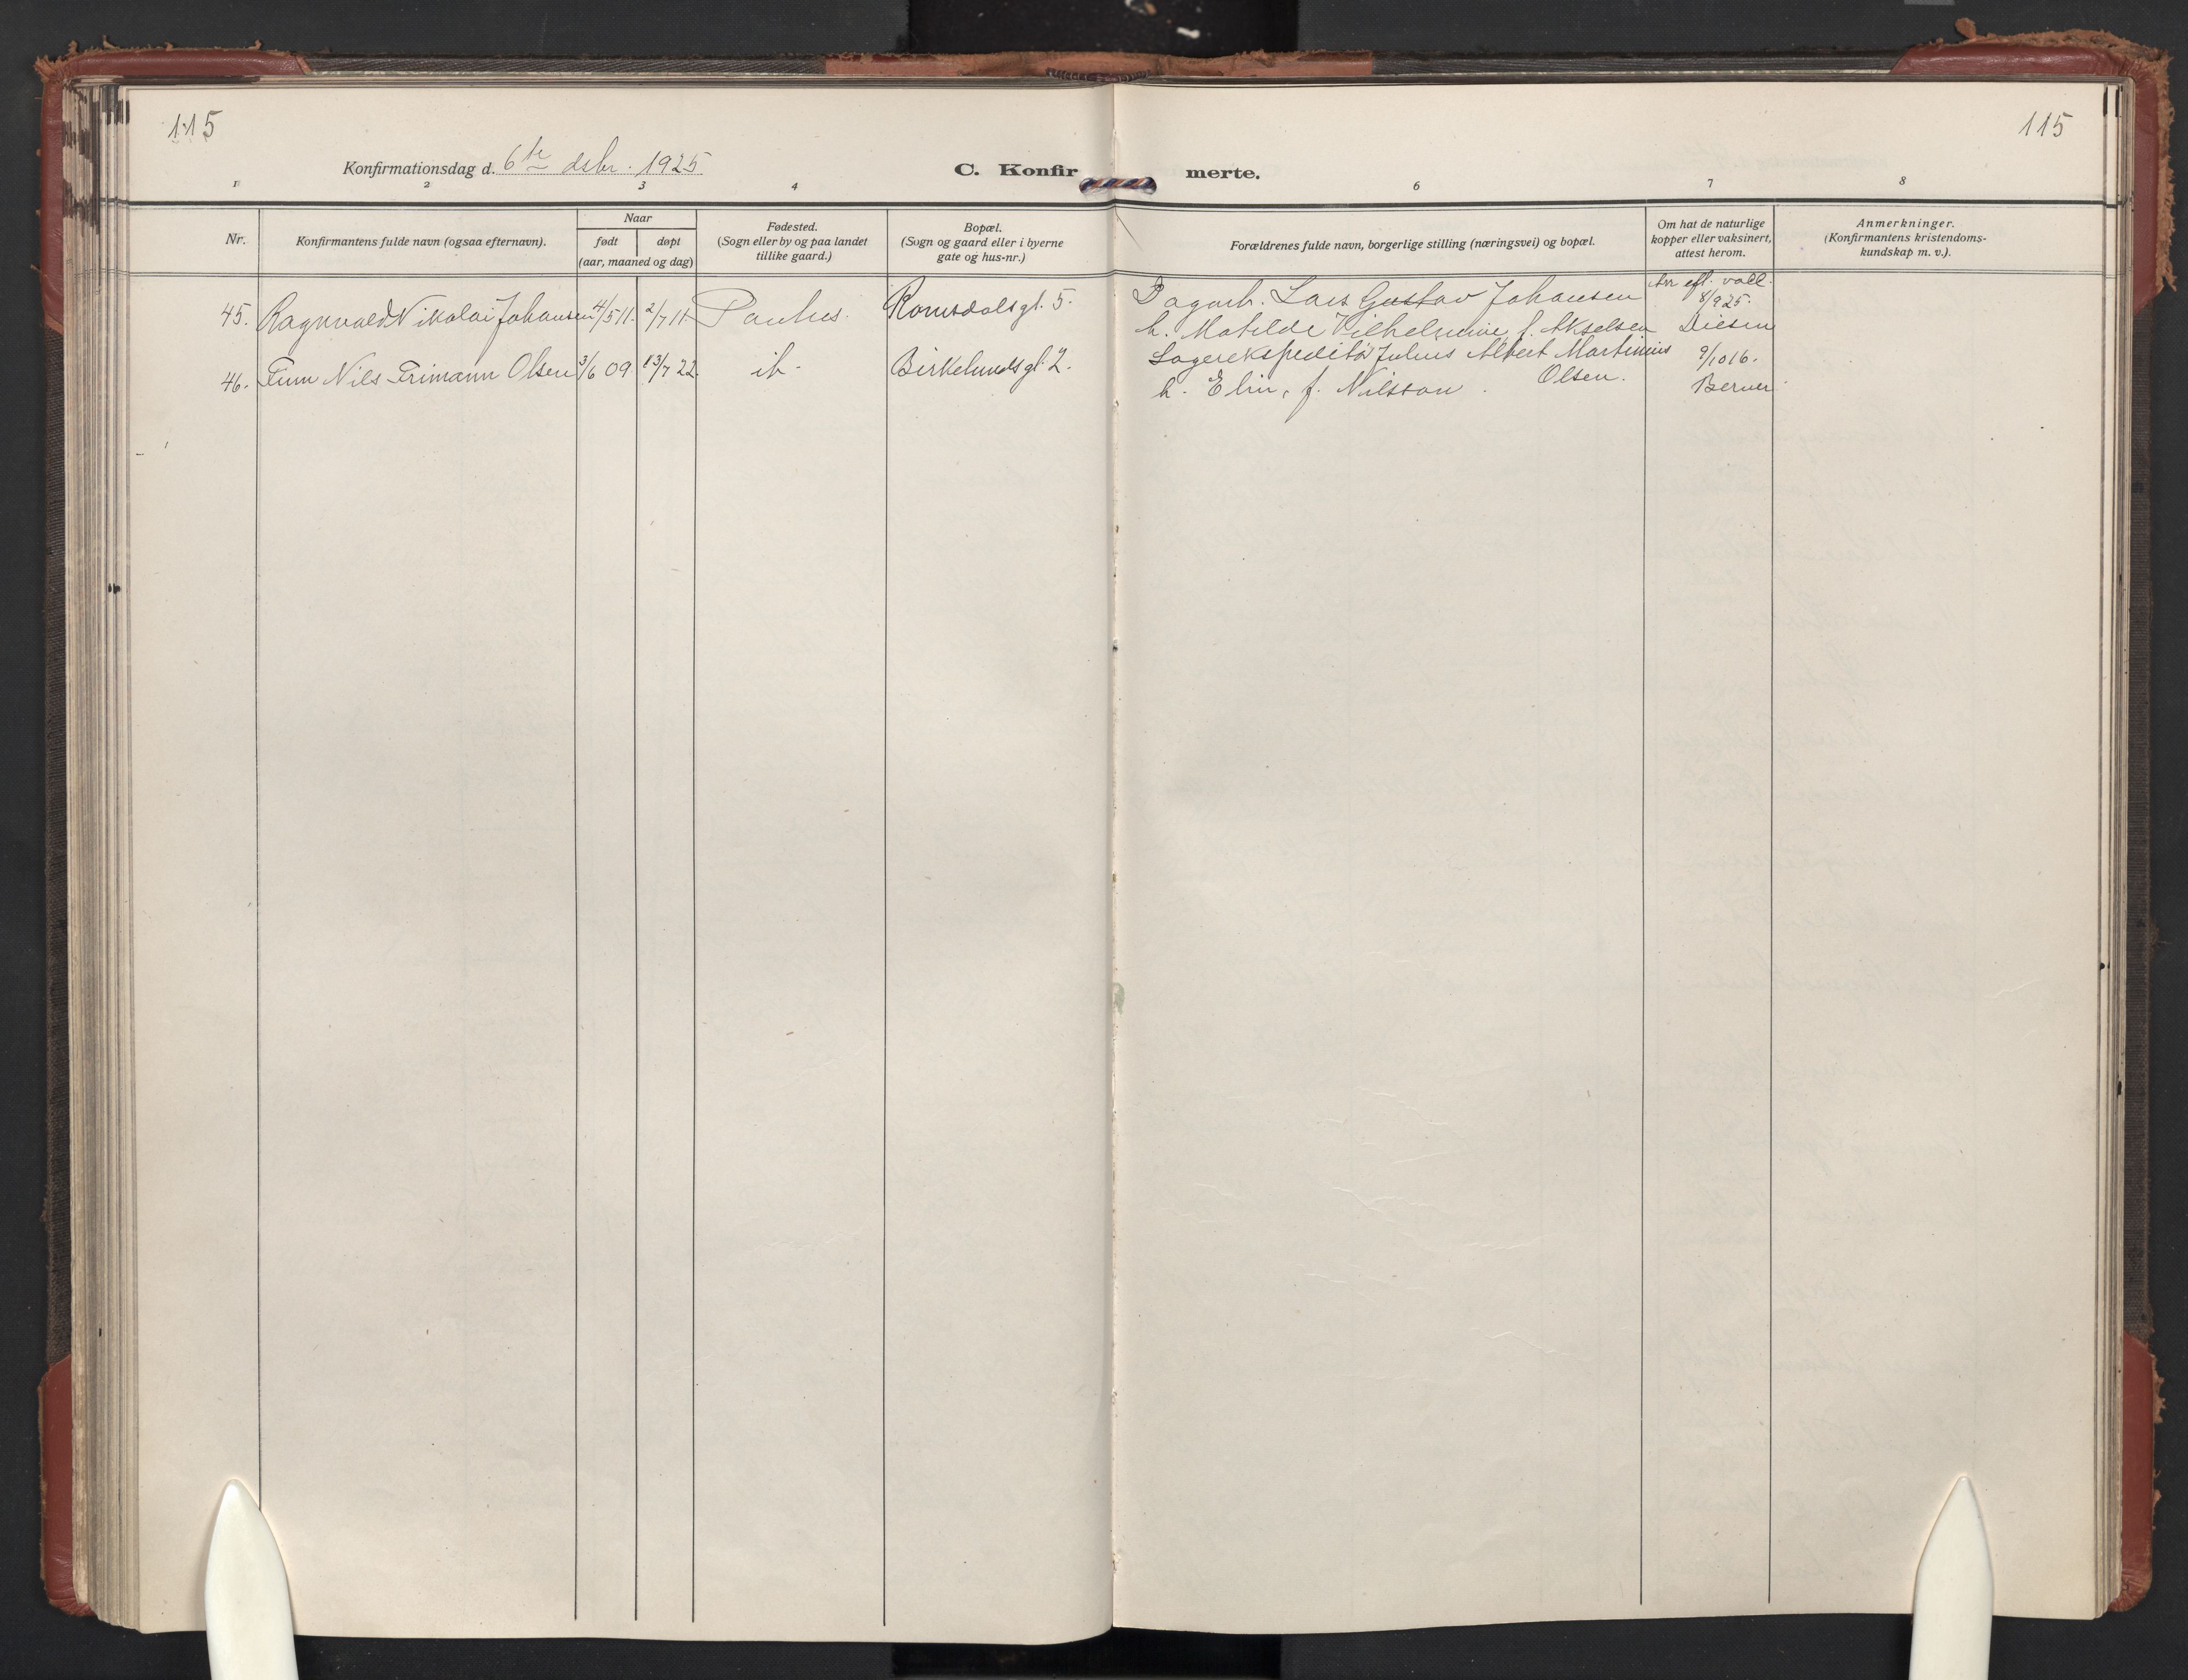 115
115
Konfirmationsdag d. 6te dsbr. 1925
C. Konfirmerte.
1 2 3 4 6 7 8
Nr.
Konfirmantens fulde navn (ogsaa efternavn).
Naar
født
døpt
(aar, maaned og dag)
Fødested.
(Sogn eller by og paa landet
tillike gaard.)
Bopæl.
(Sogn og gaard eller i byerne
gate og hus-nr.)
Forældrenes fulde navn, borgerlige stilling (næringsvei) og bopæl.
Om hat de naturlige
kopper eller vaksinert,
attest herom.
Anmerkninger.
(Konfirmantens kristendoms-
kundskap m. v.).
45. Ragnvald Nikolai Johansen 4/5 11. 2/7 11. Paulus. Romsdalsgt. 5.
Dagarb. Lars Gustav Johansen
h. Matilde Vilhelmine, f. Akselsen
8/9 25.
Diesen
46. Finn Nils Frimann Olsen 3/6 09 13/7 22. ib. Birkelundsgt. 2.
Lagerekspeditør Julius Albert Martinius
Olsen.
h. Elin, f. Nilsson.
9/10 16.
Berner